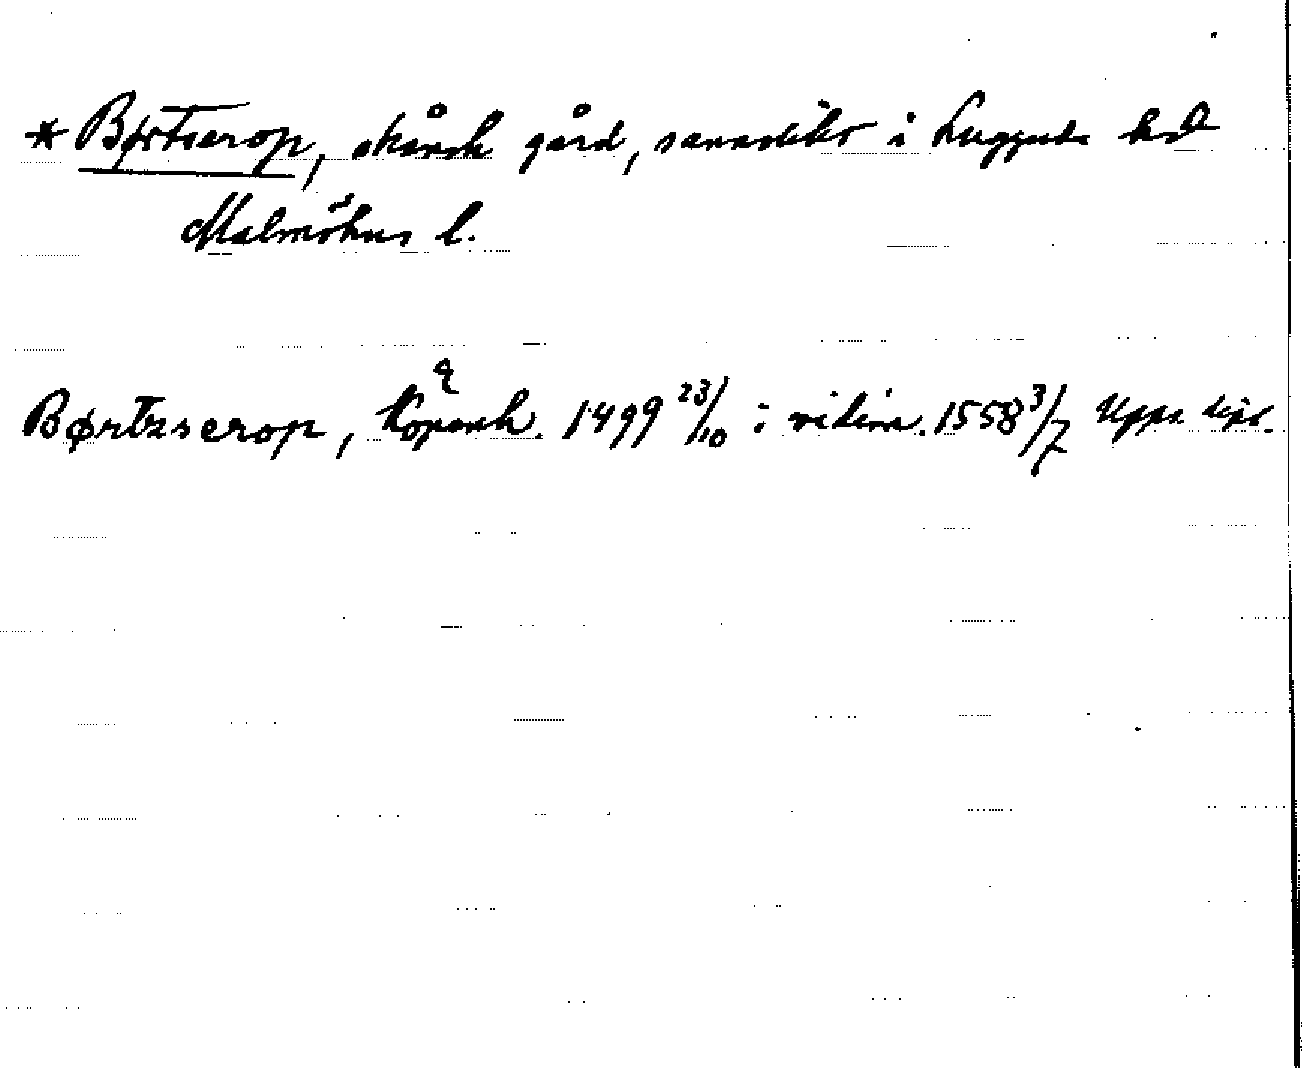 * Børtserop, skånsk gård, sannolikt i Luggude hd
Malmöhus l.
Børtzserop, Köpenh. 1499 23/10 i vidim. 1558 3/7 Upps dipl.